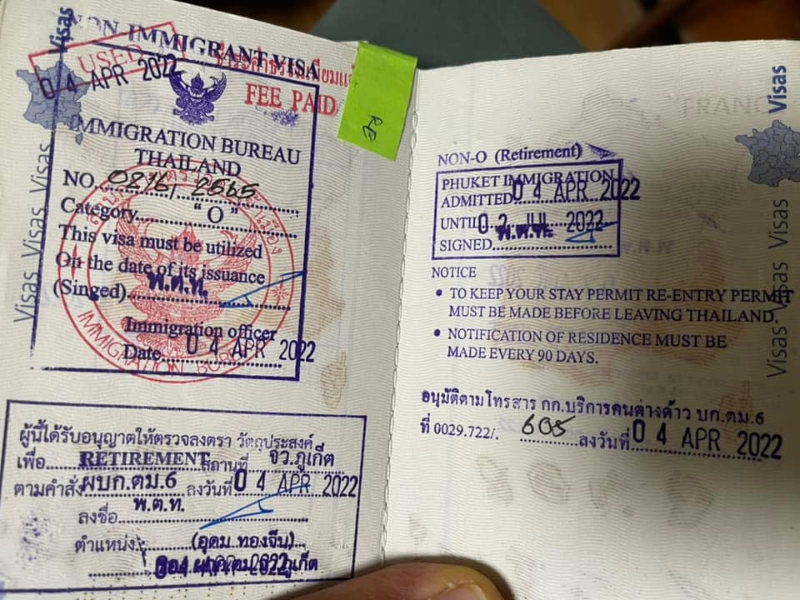 NON IMMIGRANT VISA
USED
04 APR 2022
FEE PAID
IMMIGRATION BUREAU
THAILAND
NO. 0216/2565
Category "O"
This visa must be utilized
On the date of its issuance
(Singed) พ.ต.ท.
Immigration officer
Date 04 APR 2022
IMMIGRATION
ผู้นี้ได้รับอนุญาตให้ตรวจลงตรา วัตถุประสงค์
เพื่อ RETIREMENT สถานที่ จว.ภูเก็ต
ตามคำสั่ง ผบก.ตม.6 ลงวันที่ 04 APR 2022
ลงชื่อ พ.ต.ท.
ตำแหน่ง (อุดม ทองจีน)
04 APR 2022
Visas
Visas Visas Visas
RE
FRANC
NON-O (Retirement)
PHUKET IMMIGRATION
ADMITTED 04 APR 2022
UNTIL 2022
SIGNED พ.ต.ท.
NOTICE
• TO KEEP YOUR STAY PERMIT RE-ENTRY PERMIT
MUST BE MADE BEFORE LEAVING THAILAND.
• NOTIFICATION OF RESIDENCE MUST BE
MADE EVERY 90 DAYS.
อนุมัติตามโทรสาร กก.บริการคนต่างด้าว บก.ตม.6
ที่ 0029.722/. 605 ลงวันที่ 04 APR 2022
Visas
Visas Visas